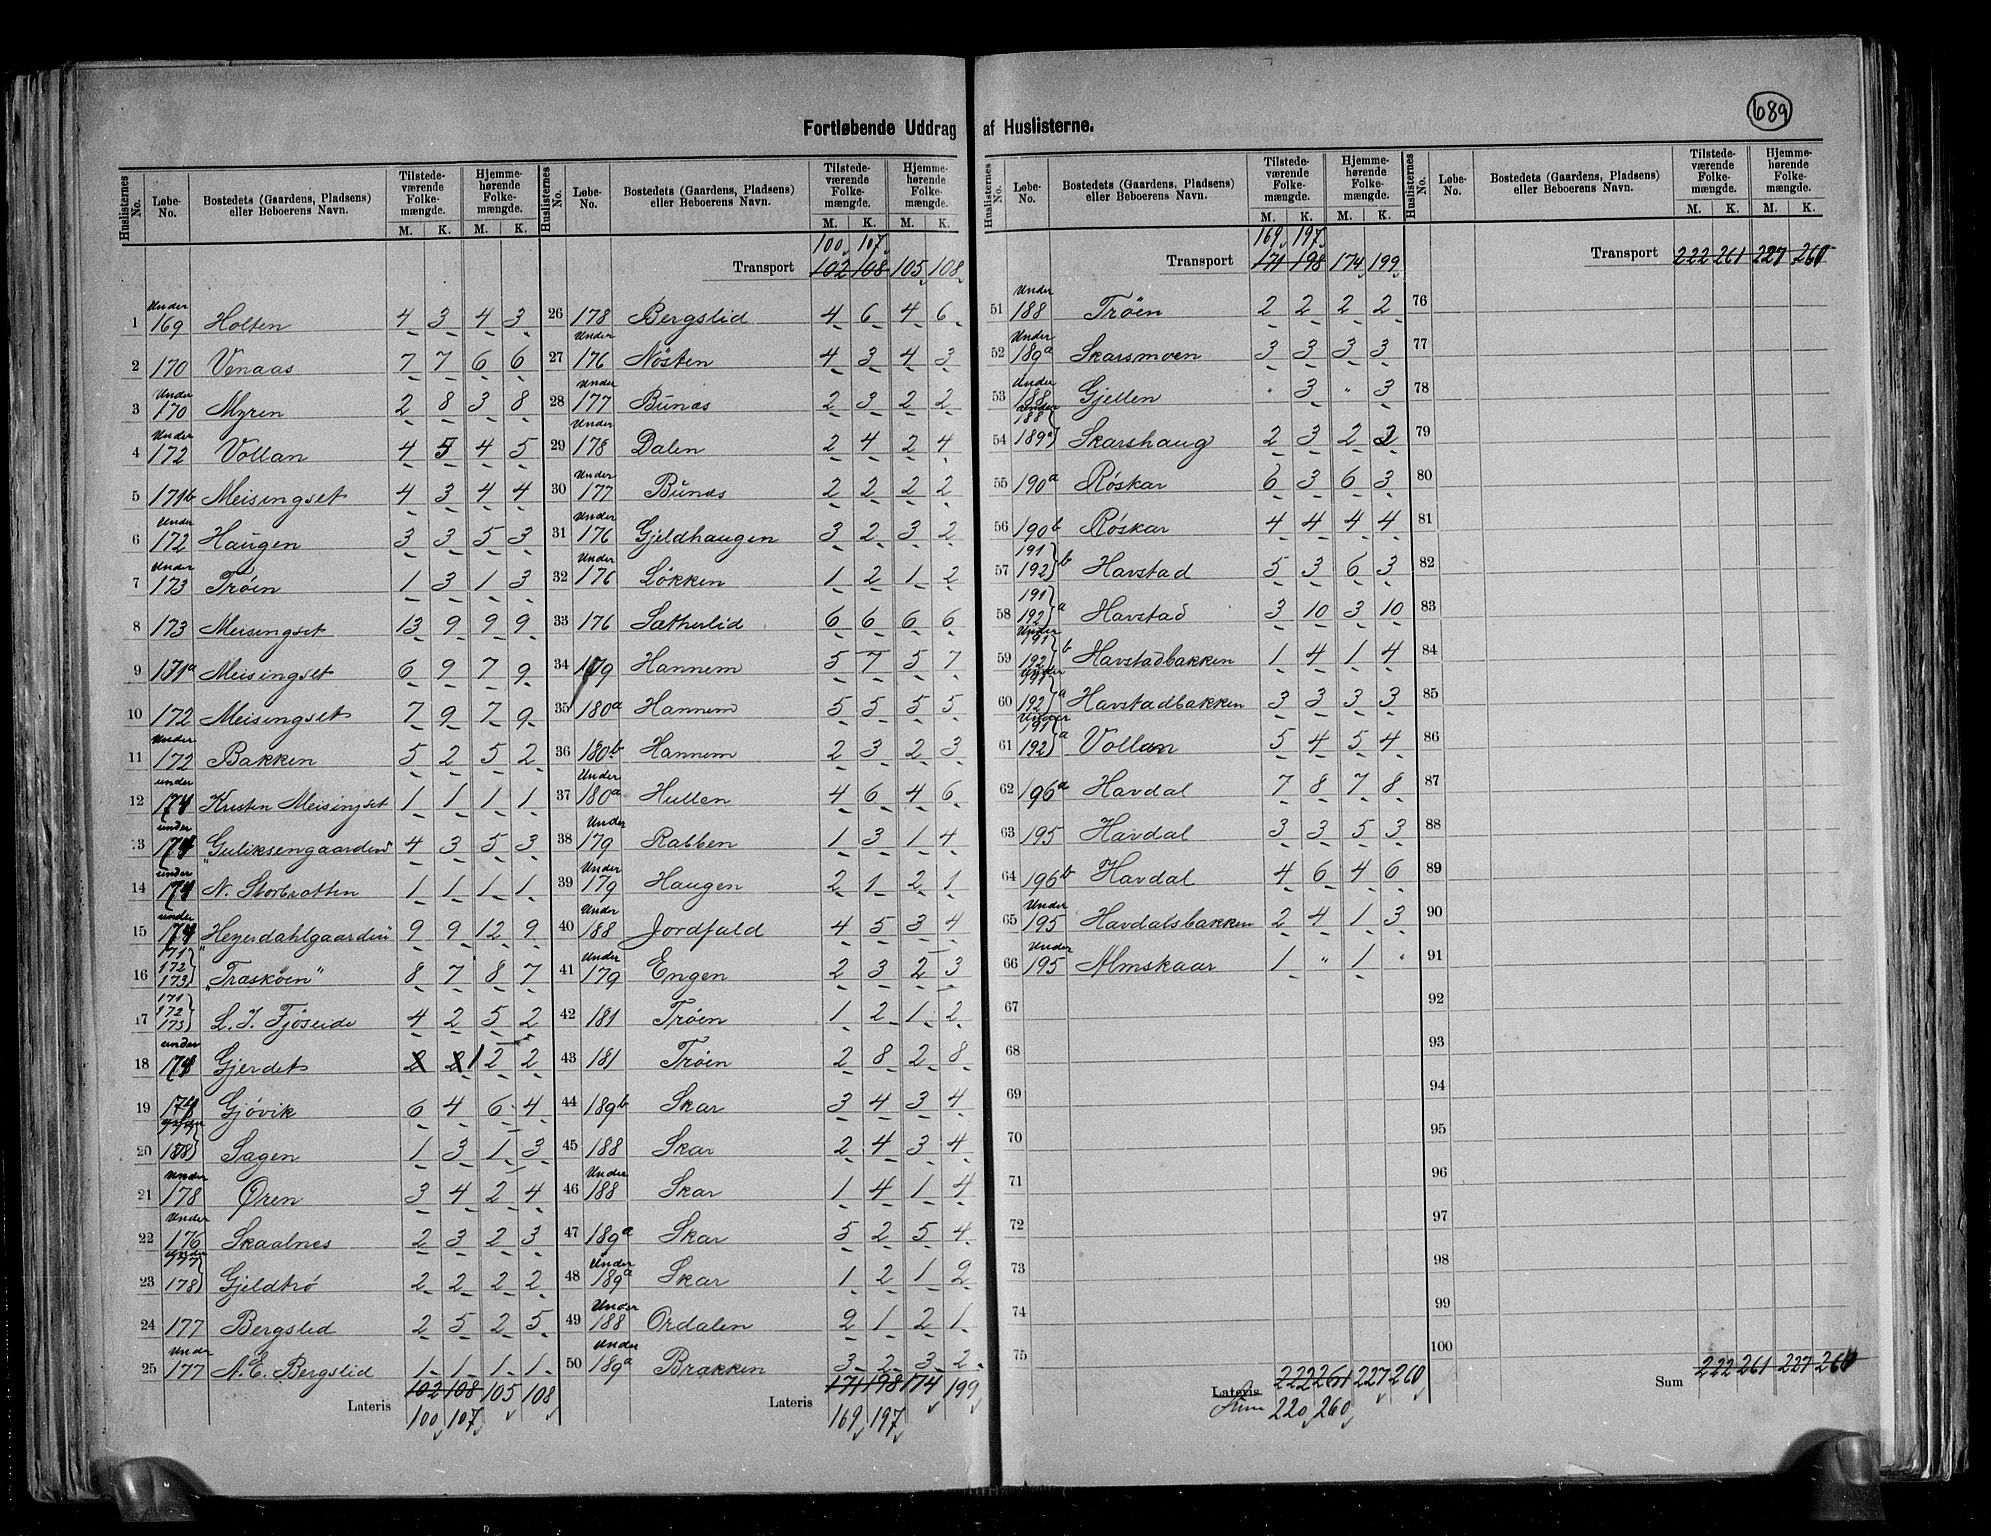 689
Fortløbende Uddrag af Huslisterne.
Huslisternes No. | Løbe-No. | Bostedets (Gaardens, Pladsens) eller Beboerens Navn. | Tilstedeværende Folkemængde. M. K. | Hjemmehørende Folkemængde. M. K.
1 Under 169 Holten 4 3 4 3
2 170 Venaas 7 7 6 6
3 Under 170 Myren 2 8 3 8
4 Under 172 Vollan 4 5 4 5
5 171b Meisingset 4 3 4 4
6 Under 172 Haugen 3 3 5 3
7 Under 173 Trøen 1 3 1 3
8 173 Meisingset 13 9 9 9
9 171a Meisingset 6 9 7 9
10 172 Meisingset 7 9 7 9
11 Under 172 Bakken 5 2 5 2
12 under 174 Kristen Meisingset 1 1 1 1
13 under 174 "Guliksengaarden" 4 3 5 3
14 under 174 N. Storbratten 1 1 1 1
15 under 174 "Heyerdahlgaarden" 9 9 12 9
16 171 172 173 "Træskøen" 8 7 8 7
17 171 172 173 L. J. Fjøseide 4 2 5 2
18 under 174 Gjerdet 1 2 2
19 174 Gjøvik 6 4 6 4
20 under 177 178 Sagen 1 3 1 3
21 Under 178 Øren 3 4 2 4
22 Under 176 Skaalnes 2 3 2 3
23 under 177 178 Gjeldtrø 2 2 2 2
24 177 Bergslid 2 5 2 5
25 Under 177 N. E. Bergslid 1 1 1 1
Lateris 102 108 105 108
100 107
100 107
Transport 102 108 105 108
26 178 Bergslid 4 6 4 6
27 Under 176 Nøsten 4 3 4 3
28 Under 177 Bunæs 2 3 2 2
29 Under 178 Dalen 2 4 2 4
30 Under 177 Bunæs 2 2 2 2
31 Under 176 Gjeldhaugen 3 2 3 2
32 Under 176 Løkken 1 2 1 2
33 176 Sætherlid 6 6 6 6
34 179 Hannem 5 7 5 7
35 180a Hannem 5 5 5 5
36 180b Hannem 2 3 2 3
37 Under 180a Hullen 4 6 4 6
38 Under 179 Rabben 1 3 1 4
39 Under 179 Haugen 2 1 2 1
40 Under 188 Jordfald 4 5 3 4
41 Under 179 Engen 2 3 2 3
42 181 Trøen 1 2 1 2
43 181 Trøen 2 8 2 8
44 189b Skar 3 4 3 4
45 188 Skar 2 4 3 4
46 Under 188 Skar 1 4 1 4
47 189a Skar 5 2 5 4
48 Under 189a Skar 1 2 1 2
49 Under 188 Ordalen 2 1 2 1
50 Under 189a Brækken 3 2 3 2
Lateris 171 198 174 199
169 197
169 197
Transport 171 198 174 199
51 Under 188 Trøen 2 2 2 2
52 Under 189a Skarsmoen 3 3 3 3
53 Under 188 Gjellen " 3 " 3
54 under 188 189a Skarshaug 2 3 2 2
55 190a Røskar 6 3 6 3
56 190b Røskar 4 4 4 4
57 191 192 b Havstad 5 3 6 3
58 191 192 a Havstad 3 10 3 10
59 Under 191 192 b Havstadbakken 1 4 1 4
60 Under 191 192 a Havstadbakken 3 3 3 3
61 Under 191 192 a Vollan 5 4 5 4
62 196a Havdal 7 8 7 8
63 195 Havdal 3 3 5 3
64 196b Havdal 4 6 4 6
65 Under 195 Havdalsbakken 2 4 1 3
66 Under 195 Almskaar 1 " 1 "
67
68
69
70
71
72
73
74
75
222 261 227 260
Lateris
Sum 220 260
Transport 222 261 227 260
76
77
78
79
80
81
82
83
84
85
86
87
88
89
90
91
92
93
94
95
96
97
98
99
100
Sum 222 261 227 260